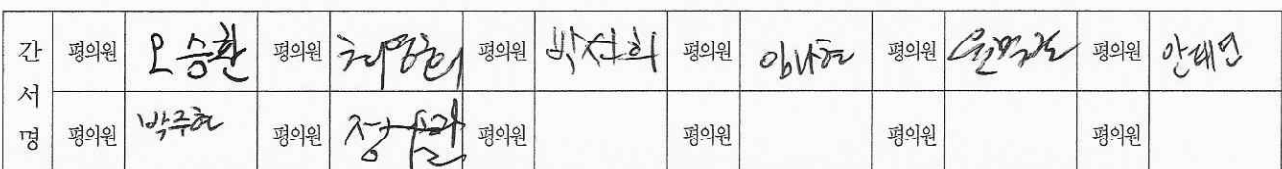 간서명
평의원 오승환 평의원 평의원 박선희 평의원 평의원 평의원 안태연
평의원 박주현 평의원 평의원 평의원 평의원 평의원